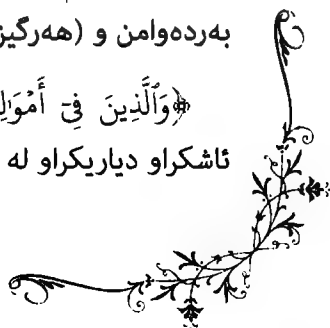 بەردەوامن و (هەرگیز
﴿وَٱلَّذِينَ فِىٓ أَمْوَٰلِ
ئاشکراو دیاریکراو لە